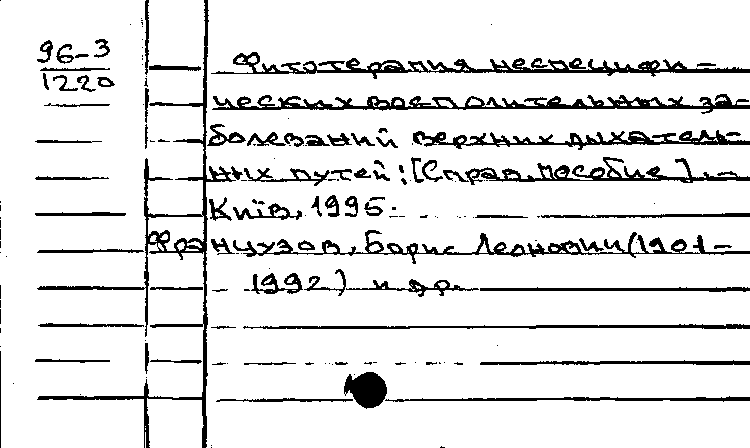 96-3
1220
Фитотерапия неспецифи-
ческих воспалительных за-
болеваний верхних дыхатель-
ных путей: [Справ. пособие]. -
Київ, 1995.
Французов, Борис Леонович (1901-
1992) и др.